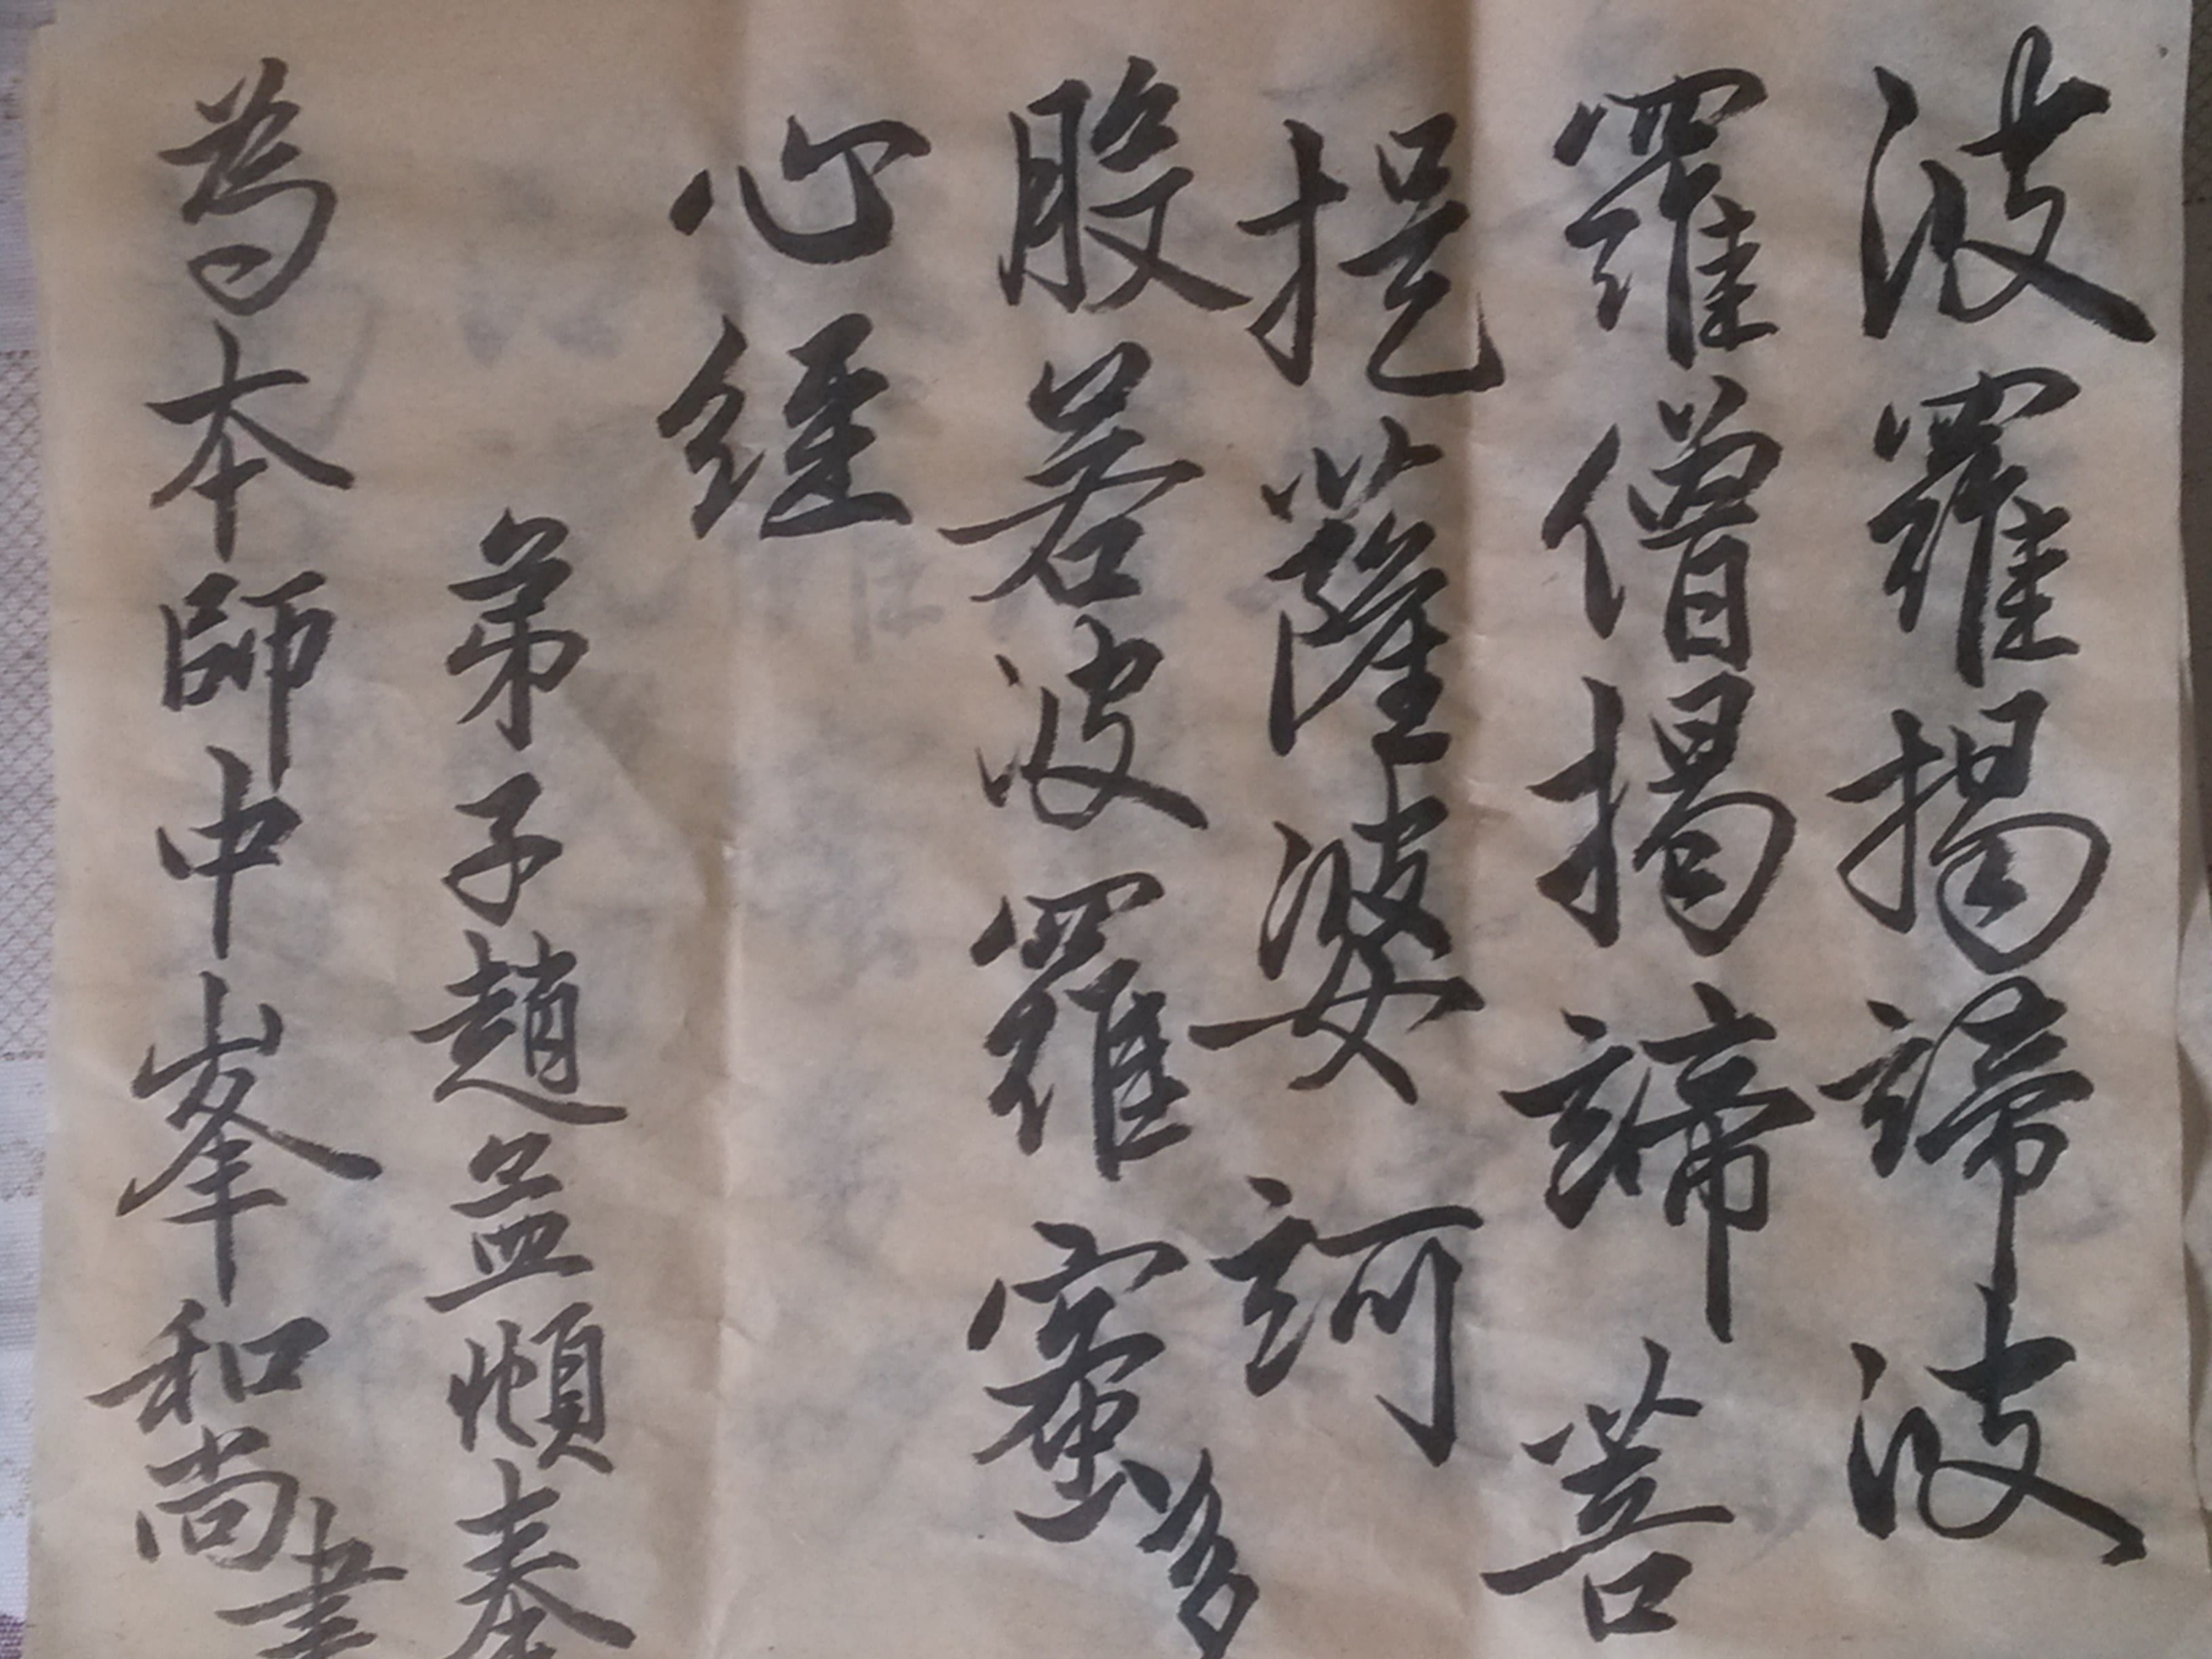 波羅揭諦波
羅僧揭諦菩
提薩婆訶
般若波羅蜜多
心經
弟子趙孟頫奉
為本師中峯和尚書